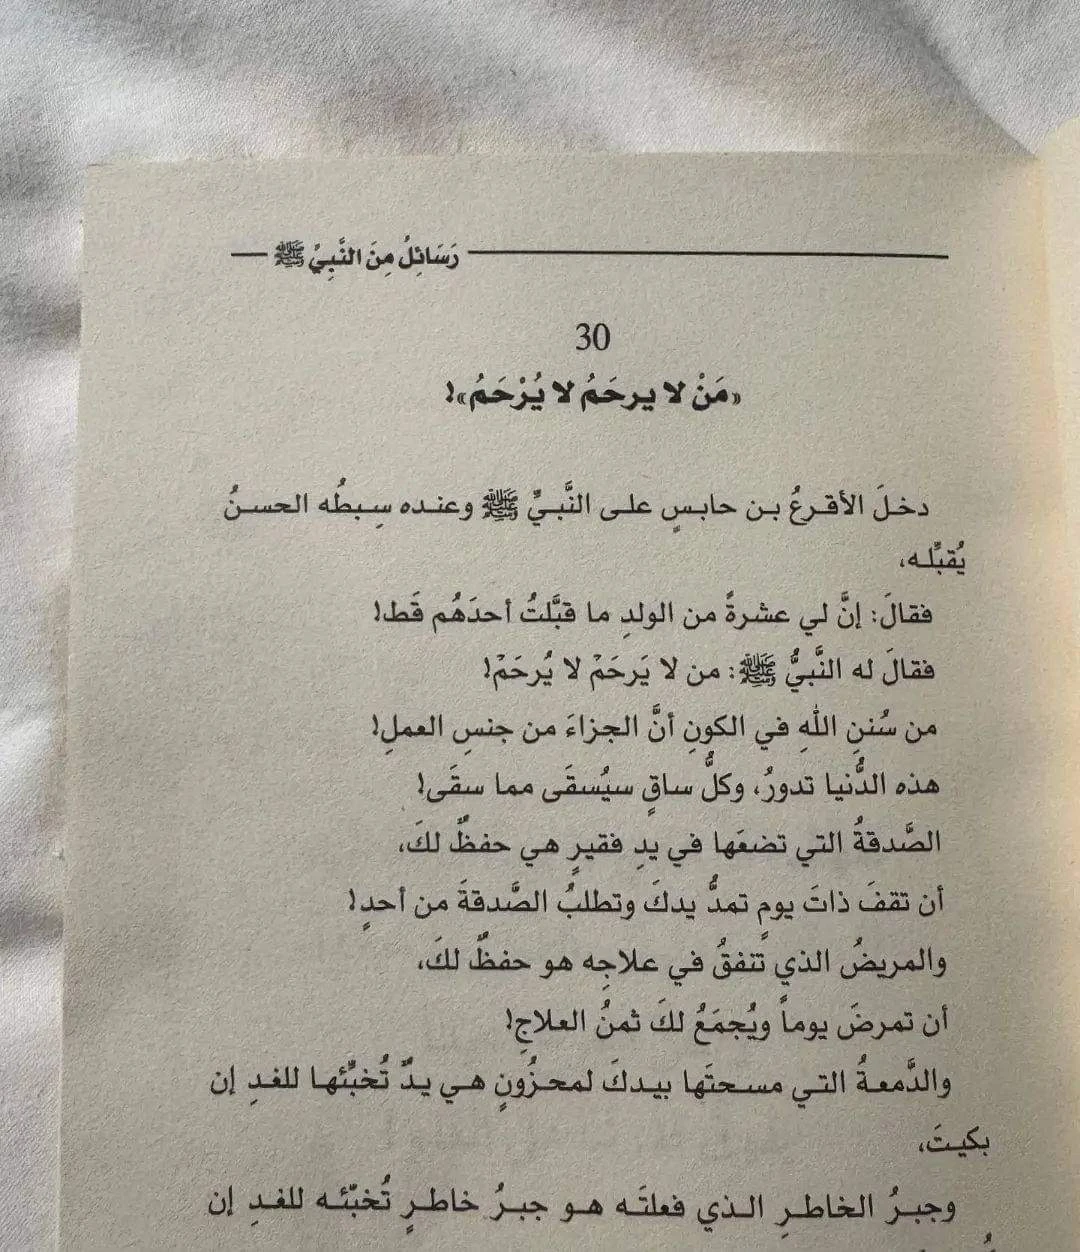 رَسَائِلُ مِنَ النَّبِيِّ ﷺ
30
«مَنْ لا يرحَمُ لا يُرْحَمُ»!
دخلَ الأقرعُ بن حابسٍ على النَّبيِّ ﷺ وعنده سِبطُه الحسنُ
يُقبِّله،
فقالَ: إنَّ لي عشرةً من الولدِ ما قبَّلتُ أحدَهُم قَط!
فقالَ له النَّبيُّ ﷺ: من لا يَرحَمْ لا يُرحَمْ!
من سُننِ اللهِ في الكونِ أنَّ الجزاءَ من جنسِ العملِ!
هذه الدُّنيا تدورُ، وكلُّ ساقٍ سيُسقَى مما سقَى!
الصَّدقةُ التي تضعَها في يدِ فقيرٍ هي حفظٌ لكَ،
أن تقفَ ذاتَ يومٍ تمدُّ يدكَ وتطلبُ الصَّدقةَ من أحدٍ!
والمريضُ الذي تُنفقُ في علاجِه هو حفظٌ لكَ،
أن تمرضَ يوماً ويُجمَعُ لكَ ثمنُ العلاجِ!
والدَّمعةُ التي مسحتَها بيدكَ لمحزُونٍ هي يدٌ تُخبِّئها للغدِ إن
بكيتَ،
وجبرُ الخاطرِ الذي فعلتَه هو جبرُ خاطرٍ تُخبّئه للغدِ إن